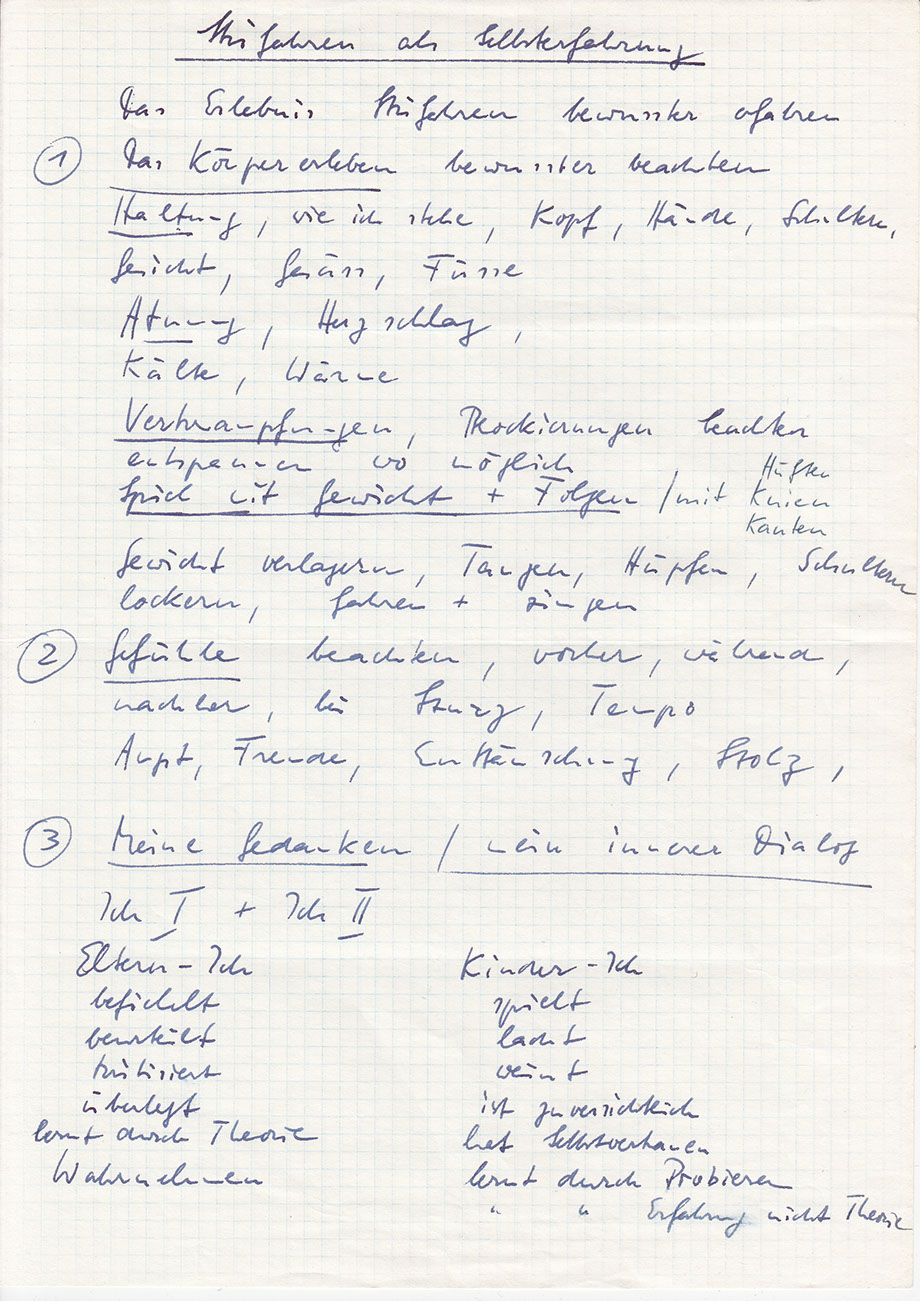 Skifahren als Selbsterfahrung
Das Erlebnis Skifahren bewusster erfahren
① Das Körpererleben bewusster beachten
Haltung, wie ich stehe, Kopf, Hände, Schultern,
Gesicht, Gesäss, Füsse
Atmung, Herzschlag,
Kälte, Wärme
Verkrampfungen, Blockierungen beachten
entspannen wo möglich
Spiel mit Gewicht + Folgen / mit Hüften
Knien
Kanten
Gewicht verlagern, Tanzen, Hüpfen, Schultern
lockern, fahren + singen
② Gefühle beachten, vorher, während,
nachher, bei Sturz, Tempo
Angst, Freude, Enttäuschung, Stolz,
③ Meine Gedanken / mein innerer Dialog
Ich I + Ich II
Eltern-Ich Kinder-Ich
befiehlt spielt
beurteilt lacht
kritisiert weint
überlegt ist zuversichtlich
lernt durch Theorie hat Selbstvertrauen
Wahrnehmen lernt durch Probieren
" " Erfahrung nicht Theorie